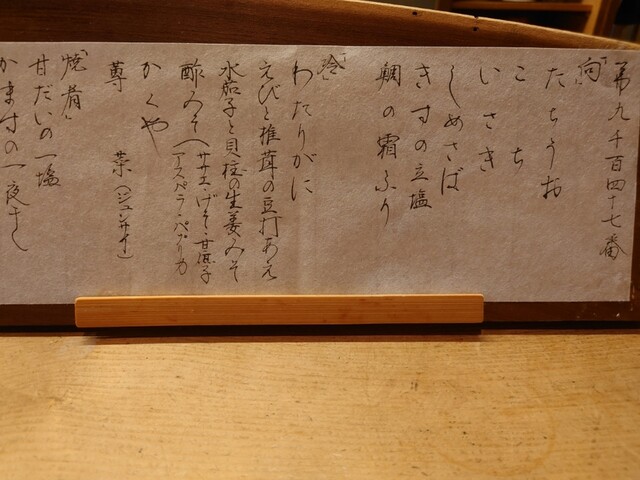 第九千百四十七番
「向」
たちうお
こち
いさき
しめさば
きすの立塩
鯛の霜ふり
「冷」
わたりがに
えびと椎茸の豆打あえ
水茄子と貝柱の生姜みそ
酢みそ(サザエ・げそ・甘唐子
アスペラ・パプリカ
かくや
蓴菜(ジュンサイ)
焼肴
甘だいの一塩
かますの一夜干し